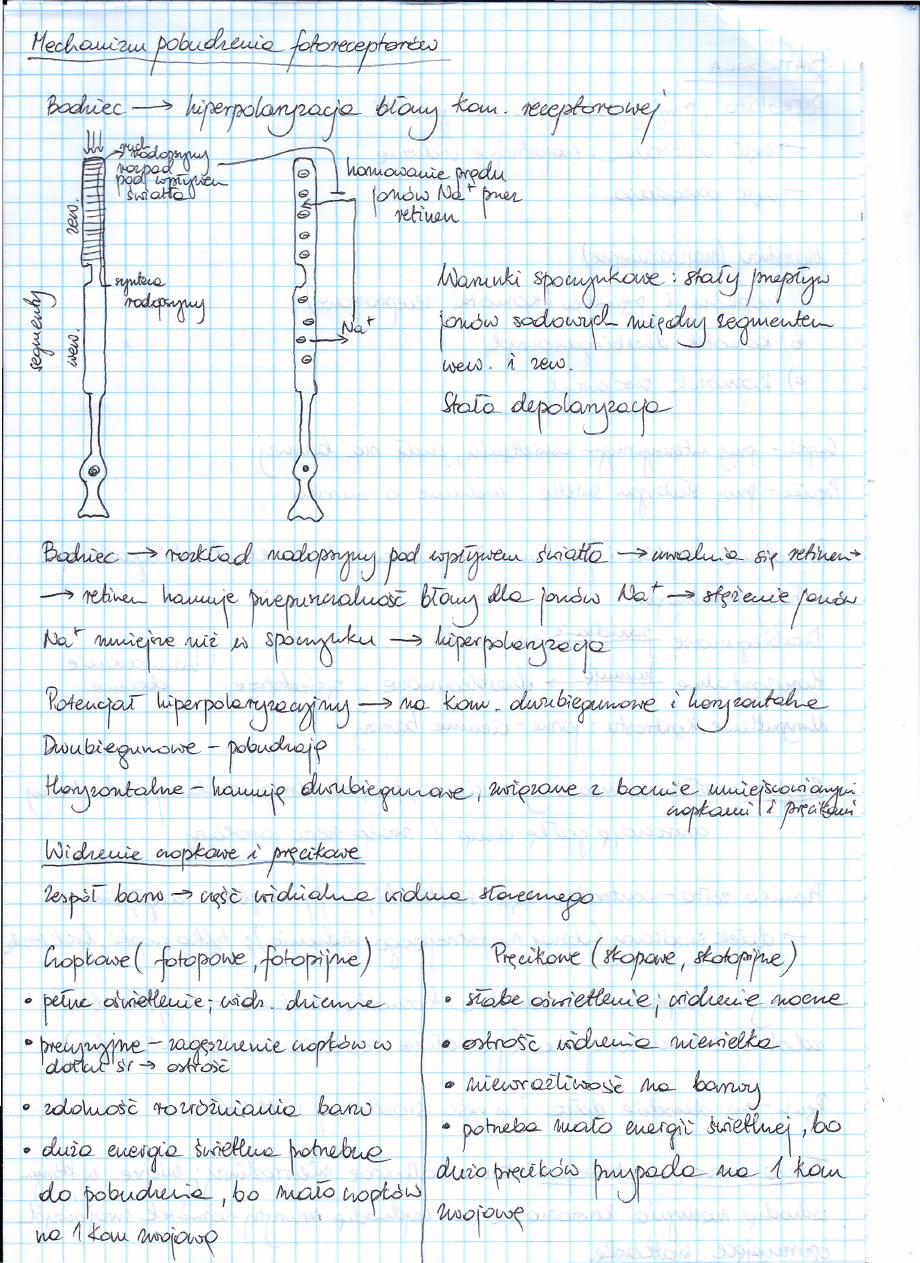 Mechanizm pobudzenia fotoreceptorów
Bodziec → hiperpolaryzacja błony kom. receptorowej
ruch
rodopsyny
rozpad
pod wpływem
światła
hamowanie prądu
jonów Na⁺ przez
retinen
zew.
synteza
rodopsyny
segmenty
wew.
Na⁺
Warunki spoczynkowe: stały przepływ
jonów sodowych między segmentem
wew. i zew.
Stała depolaryzacja
Bodziec → rozkład rodopsyny pod wpływem światła → uwalnia się retinen →
→ retinen hamuje przepuszczalność błony dla jonów Na⁺ → stężenie jonów
Na⁺ mniejsze niż w spoczynku → hiperpolaryzacja
Potencjał hiperpolaryzacyjny → na kom. dwubiegunowe i horyzontalne
Dwubiegunowe – pobudzają
Horyzontalne – hamują dwubiegunowe, związane z bocznie umiejscowionymi
czopkami i pręcikami
Widzenie czopkowe i pręcikowe
zespół barw → część widzialna widma słonecznego
Czopkowe (fotopowe, fotopijne)
• pełne oświetlenie; widz. dzienne
• precyzyjne – zagęszczenie czopków w
dołku śr → ostrość
• zdolność rozróżniania barw
• duża energia świetlna potrzebna
do pobudzenia, bo mało czopków
na 1 kom zwojową
Pręcikowe (skopowe, skotopijne)
• słabe oświetlenie; widzenie nocne
• ostrość widzenia niewielka
• niewrażliwość na barwy
• potrzeba mało energii świetlnej, bo
dużo pręcików przypada na 1 kom
zwojową